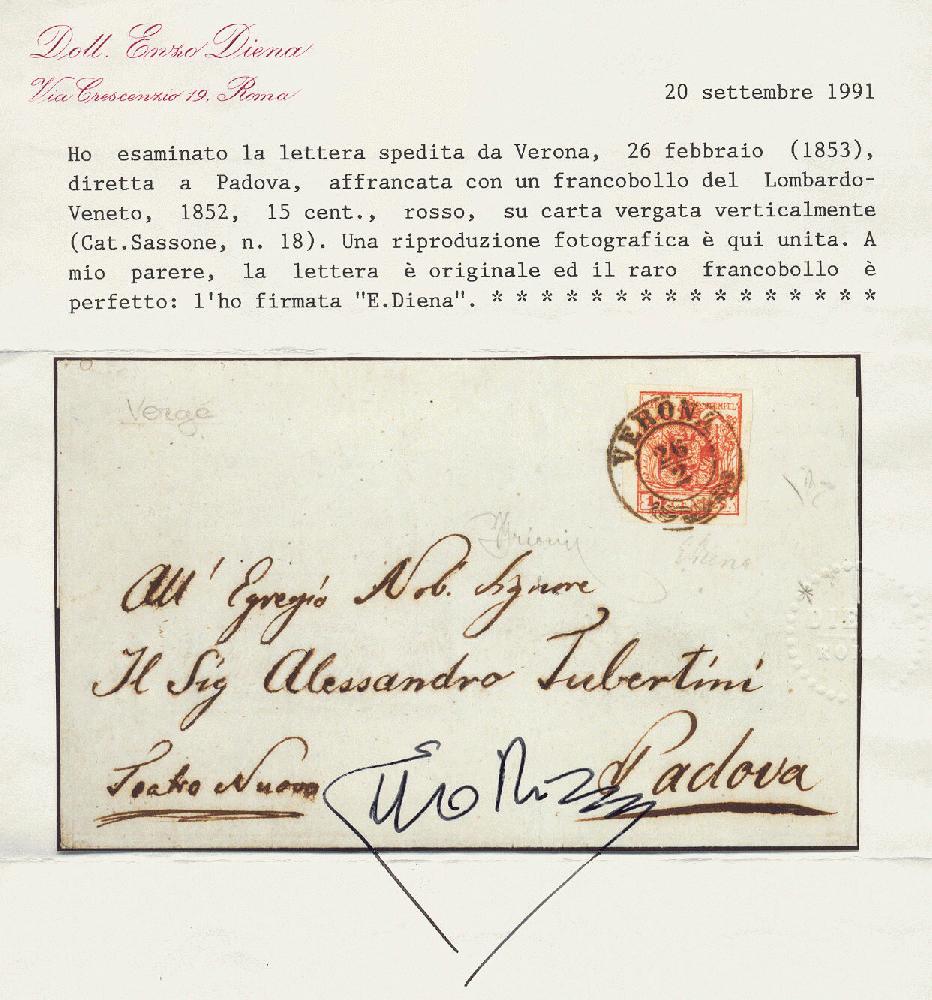 Dott. Enzo Diena
Via Crescenzio 19, Roma
20 settembre 1991
Ho esaminato la lettera spedita da Verona, 26 febbraio (1853),
diretta a Padova, affrancata con un francobollo del Lombardo-
Veneto, 1852, 15 cent., rosso, su carta vergata verticalmente
(Cat.Sassone, n. 18). Una riproduzione fotografica è qui unita. A
mio parere, la lettera è originale ed il raro francobollo è
perfetto: l'ho firmata "E.Diena". * * * * * * * * * * * * * * * *
Vergé
VERONA
26
2
EDiena
All' Egregio Nob. Signore
Il Sig Alessandro Tubertini
Teatro Nuovo
Padova